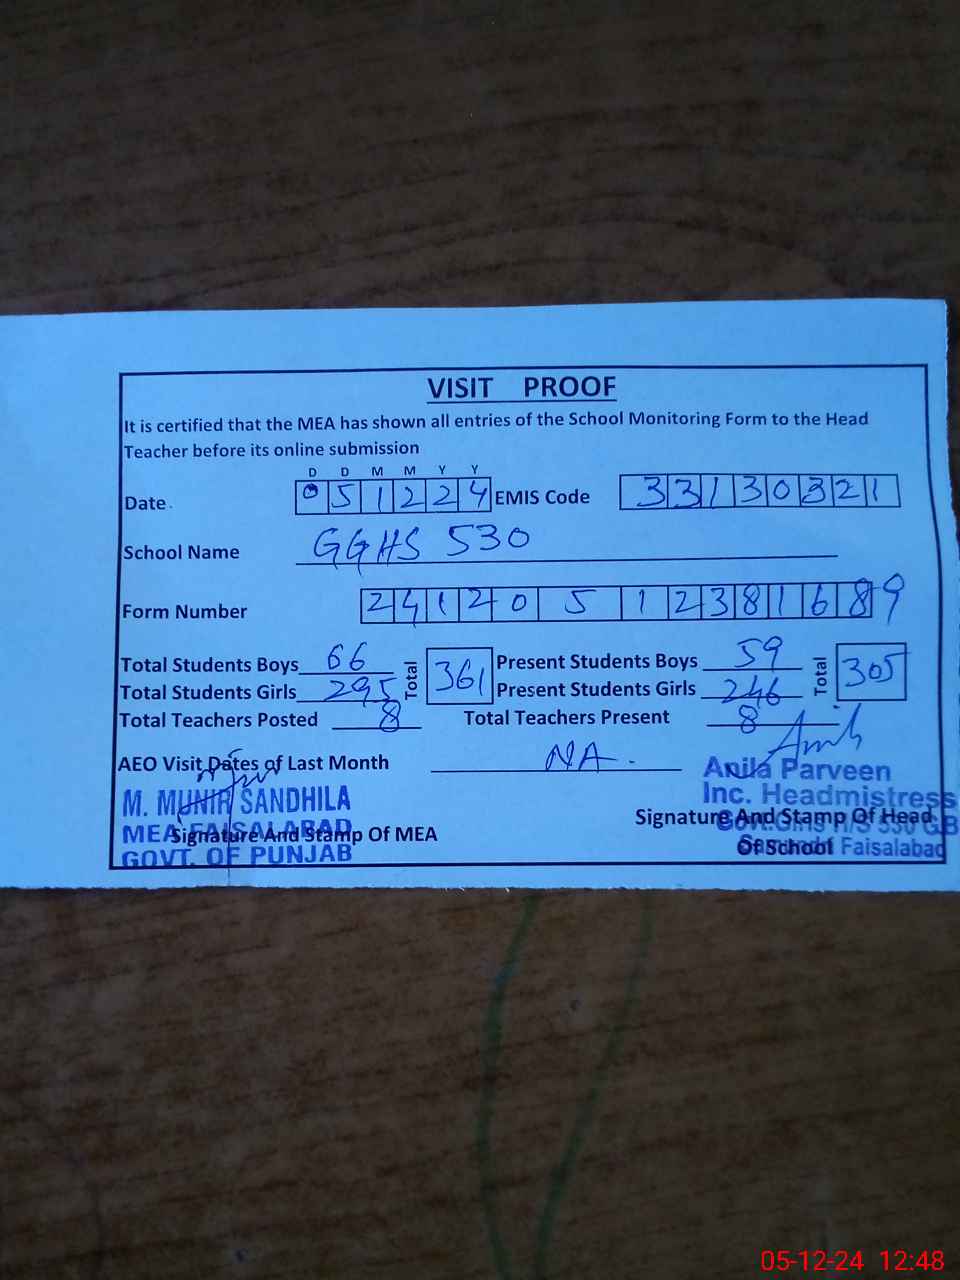 VISIT PROOF
It is certified that the MEA has shown all entries of the School Monitoring Form to the Head
Teacher before its online submission
D D M M Y Y
Date 0 5 1 2 2 4 EMIS Code 3 3 1 3 0 3 2 1
School Name GGHS 530
Form Number 2 4 1 2 0 5 1 2 3 8 1 6 8 9
Total Students Boys 66 Total 361 Present Students Boys 59 Total 305
Total Students Girls 295 Present Students Girls 246
Total Teachers Posted 8 Total Teachers Present 8
AEO Visit Dates of Last Month NA.
Anila Parveen
M. MUNIR SANDHILA Inc. Headmistress
Signature And Stamp Of MEA Signature And Stamp Of Head
MEA FAISALABAD Govt. Girls H/S 530 GB
Of School
GOVT. OF PUNJAB Samundri Faisalabad
05-12-24 12:48